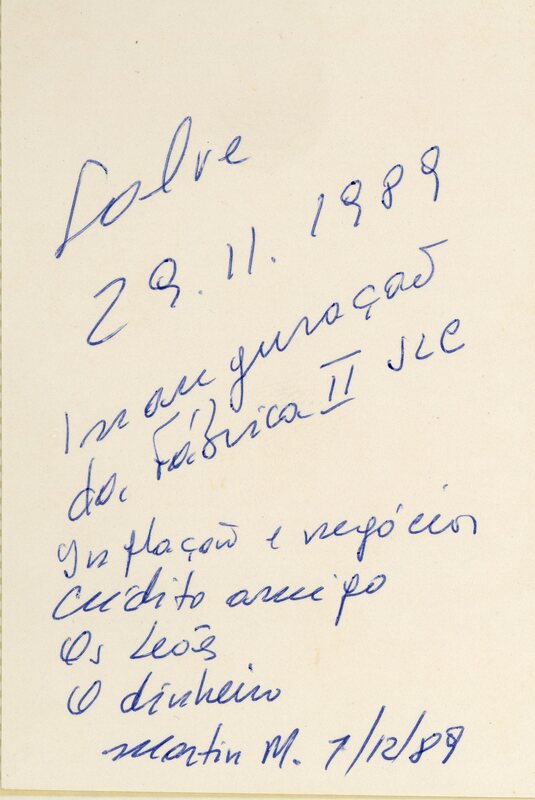 Salve
29.11.1989
Inauguração
da Fábrica II JLC
Inflação e negócios
Crédito amigo
Os leões
O dinheiro
Martin M. 7/12/89